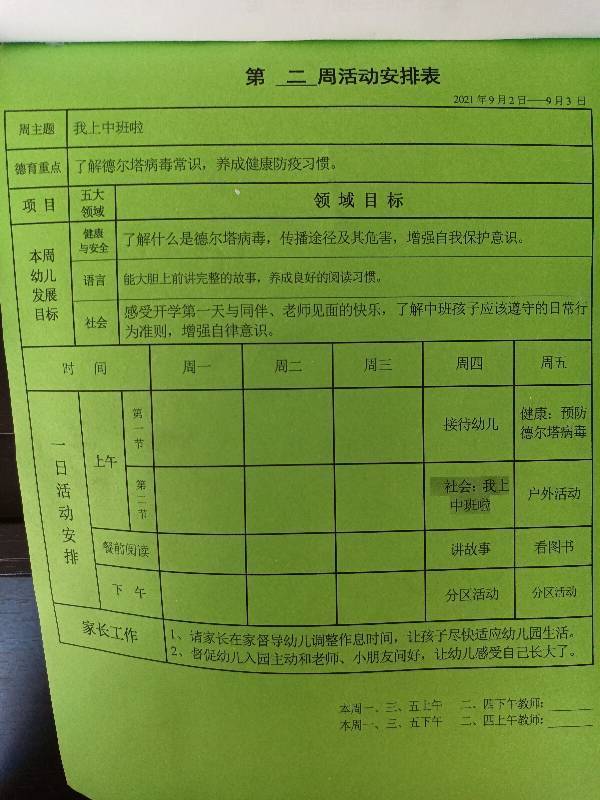 第 二 周活动安排表
2021年9月2日——9月3日
周主题 我上中班啦
德育重点 了解德尔塔病毒常识，养成健康防疫习惯。
项 目 五大 领域 领 域 目 标
本周 幼儿 发展 目标
健康 与安全 了解什么是德尔塔病毒，传播途径及其危害，增强自我保护意识。
语言 能大胆上前讲完整的故事，养成良好的阅读习惯。
社会 感受开学第一天与同伴、老师见面的快乐，了解中班孩子应该遵守的日常行
为准则，增强自律意识。
时 间 周一 周二 周三 周四 周五
一日活动安排
上午
第一节 接待幼儿 健康：预防
德尔塔病毒
第二节 社会：我上
中班啦 户外活动
餐前阅读 讲故事 看图书
下 午 分区活动 分区活动
家长工作 1、请家长在家督导幼儿调整作息时间，让孩子尽快适应幼儿园生活。
2、督促幼儿入园主动和老师、小朋友问好，让幼儿感受自己长大了。
本周一、三、五上午 二、四下午教师：
本周一、三、五下午 二、四上午教师：